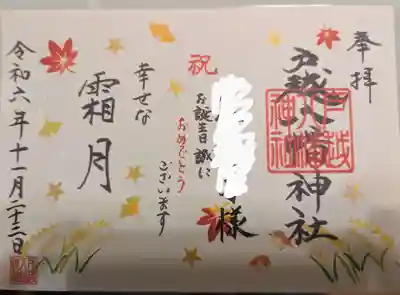 奉拝
戸越八幡神社
戸越
八幡
神社
様
祝
お誕生日 誠に
おめでとう
ございます
幸せな
霜月
令和六年十一月二十三日